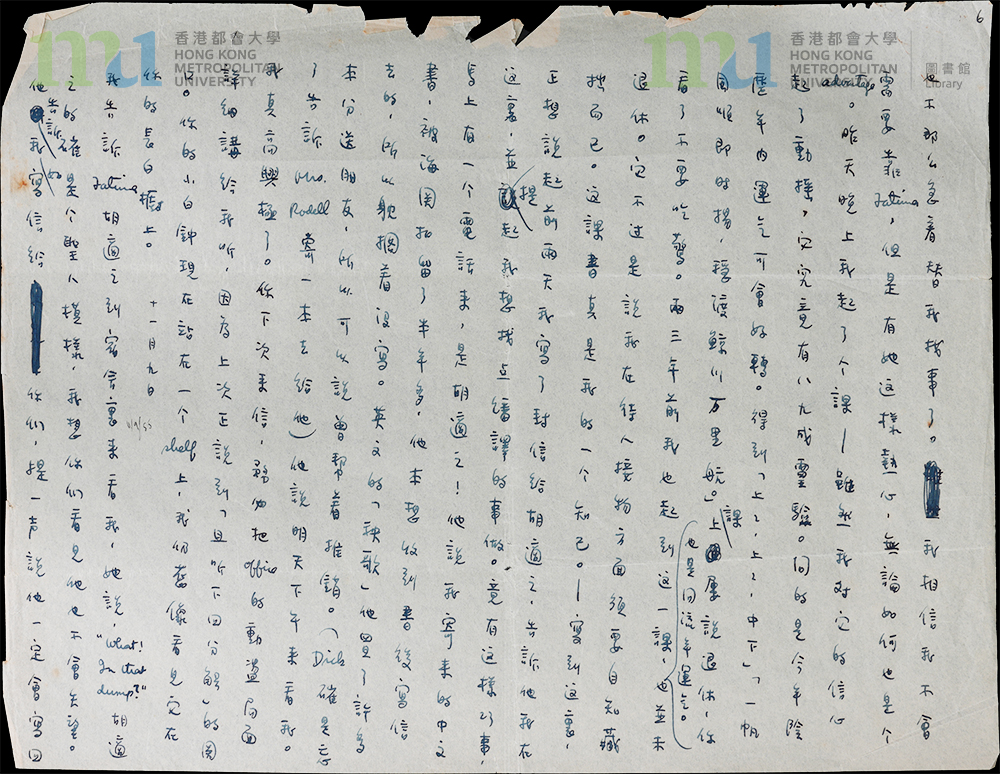 6
也不那么急着替我找事了。我相信我不會
需要靠Fatima，但是有她這樣熱心，無論如何也是个
advantage。昨天晚上我起了个課—雖然我对它的信心
起了動搖，究竟有八九成靈驗。问的是今年陰
歷年内運气可會好轉。得到「上上，上上，中下」「一帆
風順即时揚，穩渡鯨川万里航。」上課屢說退休，你
也是问流年運气。
看了不要吃驚。兩三年前我也起到這一課，也並未
退休。它不过是說我在待人接物方面須要自知藏
拙而已。这課書真是我的一个知己。—寫到這裏，
正想說起前兩天我寫了封信給胡適之，告訴他我在
这裏，並提起我想找点繙譯的事做。竟有这樣巧事，
馬上有一个電話来，是胡適之！他說我寄来的中文
書，被海関扣留了半年多，他本想收到書後寫信
去的，所以躭擱着没寫。英文的「秧歌」他買了許多
本分送朋友，所以可以說曾幫着推銷。（Dick 確是忘
了告訴 Mrs. Rodell 寄一本去給他）他說明天下午来看我。
我真高興極了。你下次来信，務必把office的動盪局面
詳細講給我听，因为上次正說到「且听下回分解」的関
口。你的小白鐘現在站在一个shelf上，我仍舊像看見它在
你的長白櫃上。 十一月九日 11/9/55
我告訴Fatima胡適之到宿舍裏来看我，她說，"What! In that dump?" 胡適
之的確是个聖人模樣，我想你们看見他也不會失望。
他告訴我如寫信給你们，提一声說他一定會寫回
香港都會大學
HONG KONG
METROPOLITAN
UNIVERSITY
香港都會大學
HONG KONG
METROPOLITAN
UNIVERSITY
圖書館
Library